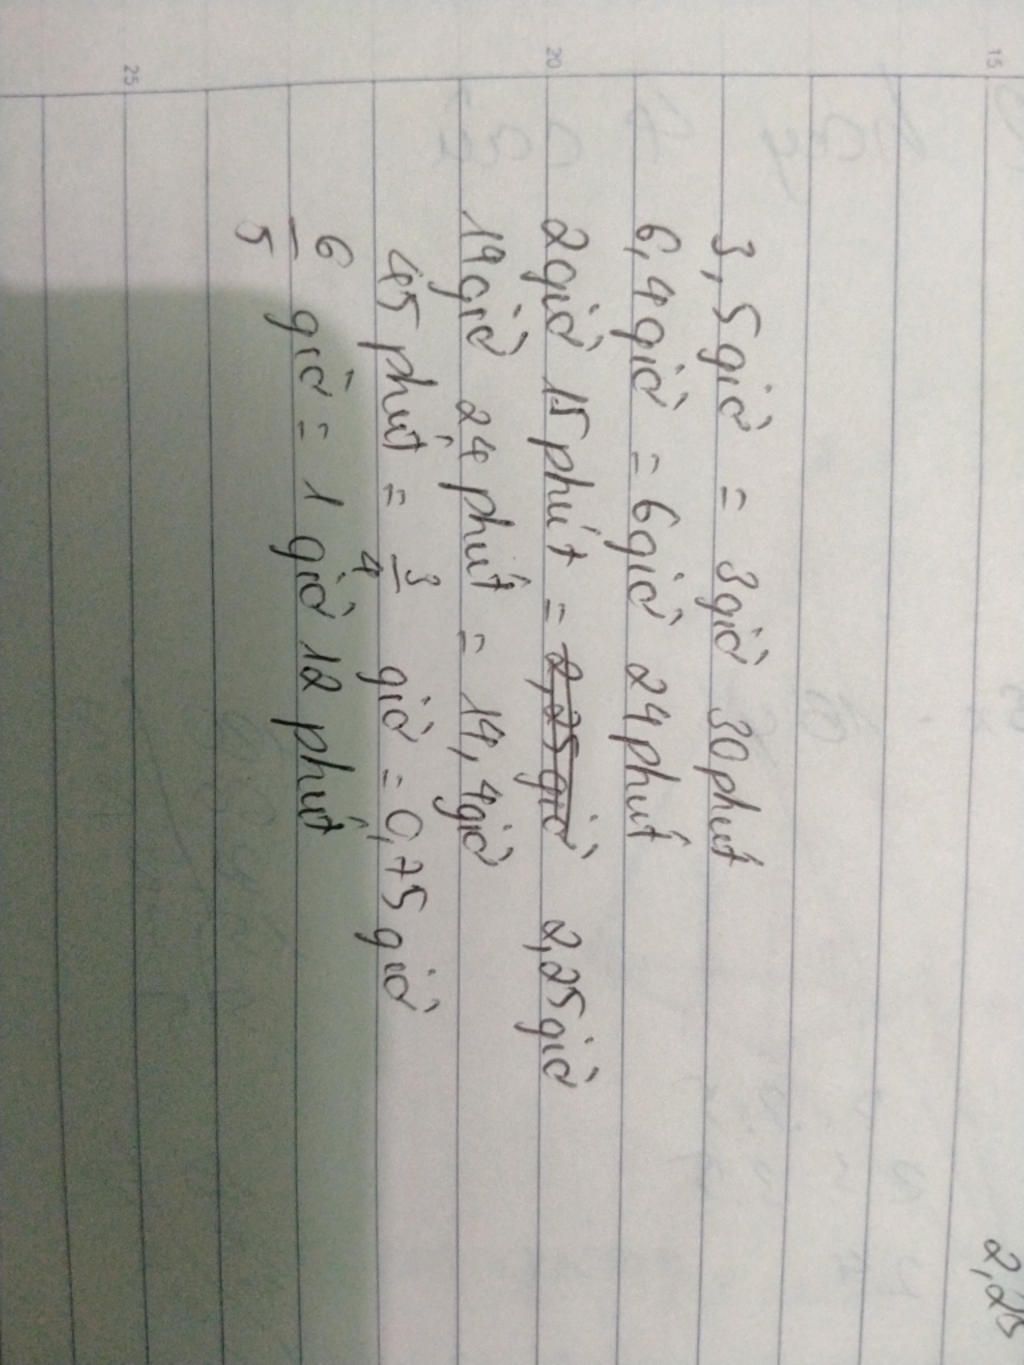 15
20
25
2,25
3,5giờ = 3giờ 30phút
6,4giờ = 6giờ 24phút
2giờ 15phút = 2,25giờ 2,25giờ
14giờ 24phút = 14,4giờ
45 phút = 3/4 giờ = 0,75 giờ
6/5 giờ = 1 giờ 12 phút